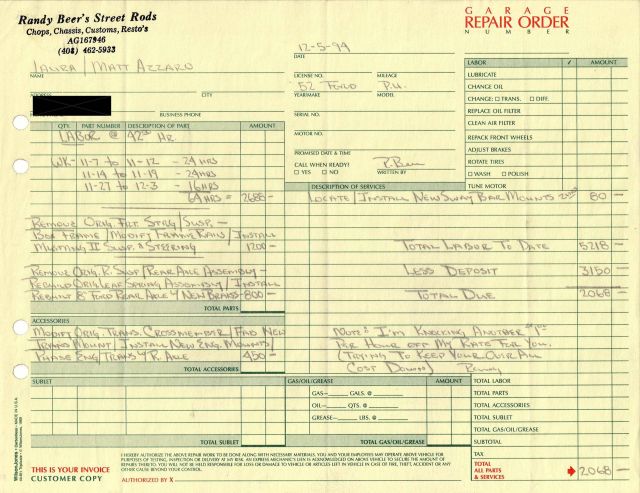 Randy Beer's Street Rods
Chops, Chassis, Customs, Resto's
AG167946
(408) 462-5933
GARAGE
REPAIR ORDER
NUMBER
12-5-94
DATE
Laura / Matt Azzaro
NAME
CITY
BUSINESS PHONE
LICENSE NO. MILEAGE
52 Ford P.U.
YEAR/MAKE MODEL
SERIAL NO.
MOTOR NO.
PROMISED DATE & TIME
CALL WHEN READY?
☐ YES ☐ NO
R. Beer
WRITTEN BY
LABOR ✓ AMOUNT
LUBRICATE
CHANGE OIL
CHANGE: ☐ TRANS. ☐ DIFF.
REPLACE OIL FILTER
CLEAN AIR FILTER
REPACK FRONT WHEELS
ADJUST BRAKES
ROTATE TIRES
☐ WASH ☐ POLISH
TUNE MOTOR
QTY. PART NUMBER DESCRIPTION OF PART AMOUNT
Labor @ 42.00 Hr.
Wk- 11-7 to 11-12 - 24 Hrs
11-14 to 11-19 - 24 Hrs
11-27 to 12-3 - 16 Hrs
64 Hrs = 2688-
Remove Orig. Frt. Strg/Susp. -
Box Frame/Modify Frame Rails/Install
Mustang II Susp. & Steering 1200-
Remove Orig. R. Susp/Rear Axle Assembly -
Rebuild Orig Leaf Spring Assembly/Install
Rebuilt 8" Ford Rear Axle W/New Brakes - 800-
TOTAL PARTS
ACCESSORIES
Modify Orig. Trans. Crossmember/Fab New
Trans Mount/Install New Eng. Mounts/
Phase Eng/Trans W R. Axle 450-
TOTAL ACCESSORIES
DESCRIPTION OF SERVICES
Locate/Install New Sway Bar Mounts 80-
Total Labor To Date 5218-
Less Deposit 3150-
Total Due 2068-
Note: I'm Knocking Another
Per Hour Off My Rate For You.
(Trying To Keep Your Over All
Cost Down) Randy
SUBLET
TOTAL SUBLET
GAS/OIL/GREASE AMOUNT
GAS— GALS. @
OIL— QTS. @
GREASE— LBS. @
TOTAL GAS/OIL/GREASE
TOTAL LABOR
TOTAL PARTS
TOTAL ACCESSORIES
TOTAL SUBLET
TOTAL GAS/OIL/GREASE
SUBTOTAL
TAX
TOTAL
ALL PARTS
& SERVICES
2068-
THIS IS YOUR INVOICE
CUSTOMER COPY
I HEREBY AUTHORIZE THE ABOVE REPAIR WORK TO BE DONE ALONG WITH NECESSARY MATERIALS. YOU AND YOUR EMPLOYEES MAY OPERATE ABOVE VEHICLE FOR
PURPOSES OF TESTING, INSPECTION OR DELIVERY AT MY RISK. AN EXPRESS MECHANIC'S LIEN IS ACKNOWLEDGED ON ABOVE VEHICLE TO SECURE THE AMOUNT OF
REPAIRS THERETO. YOU WILL NOT BE HELD RESPONSIBLE FOR LOSS OR DAMAGE TO VEHICLE OR ARTICLES LEFT IN VEHICLE IN CASE OF FIRE, THEFT, ACCIDENT OR ANY
OTHER CAUSE BEYOND YOUR CONTROL.
AUTHORIZED BY X